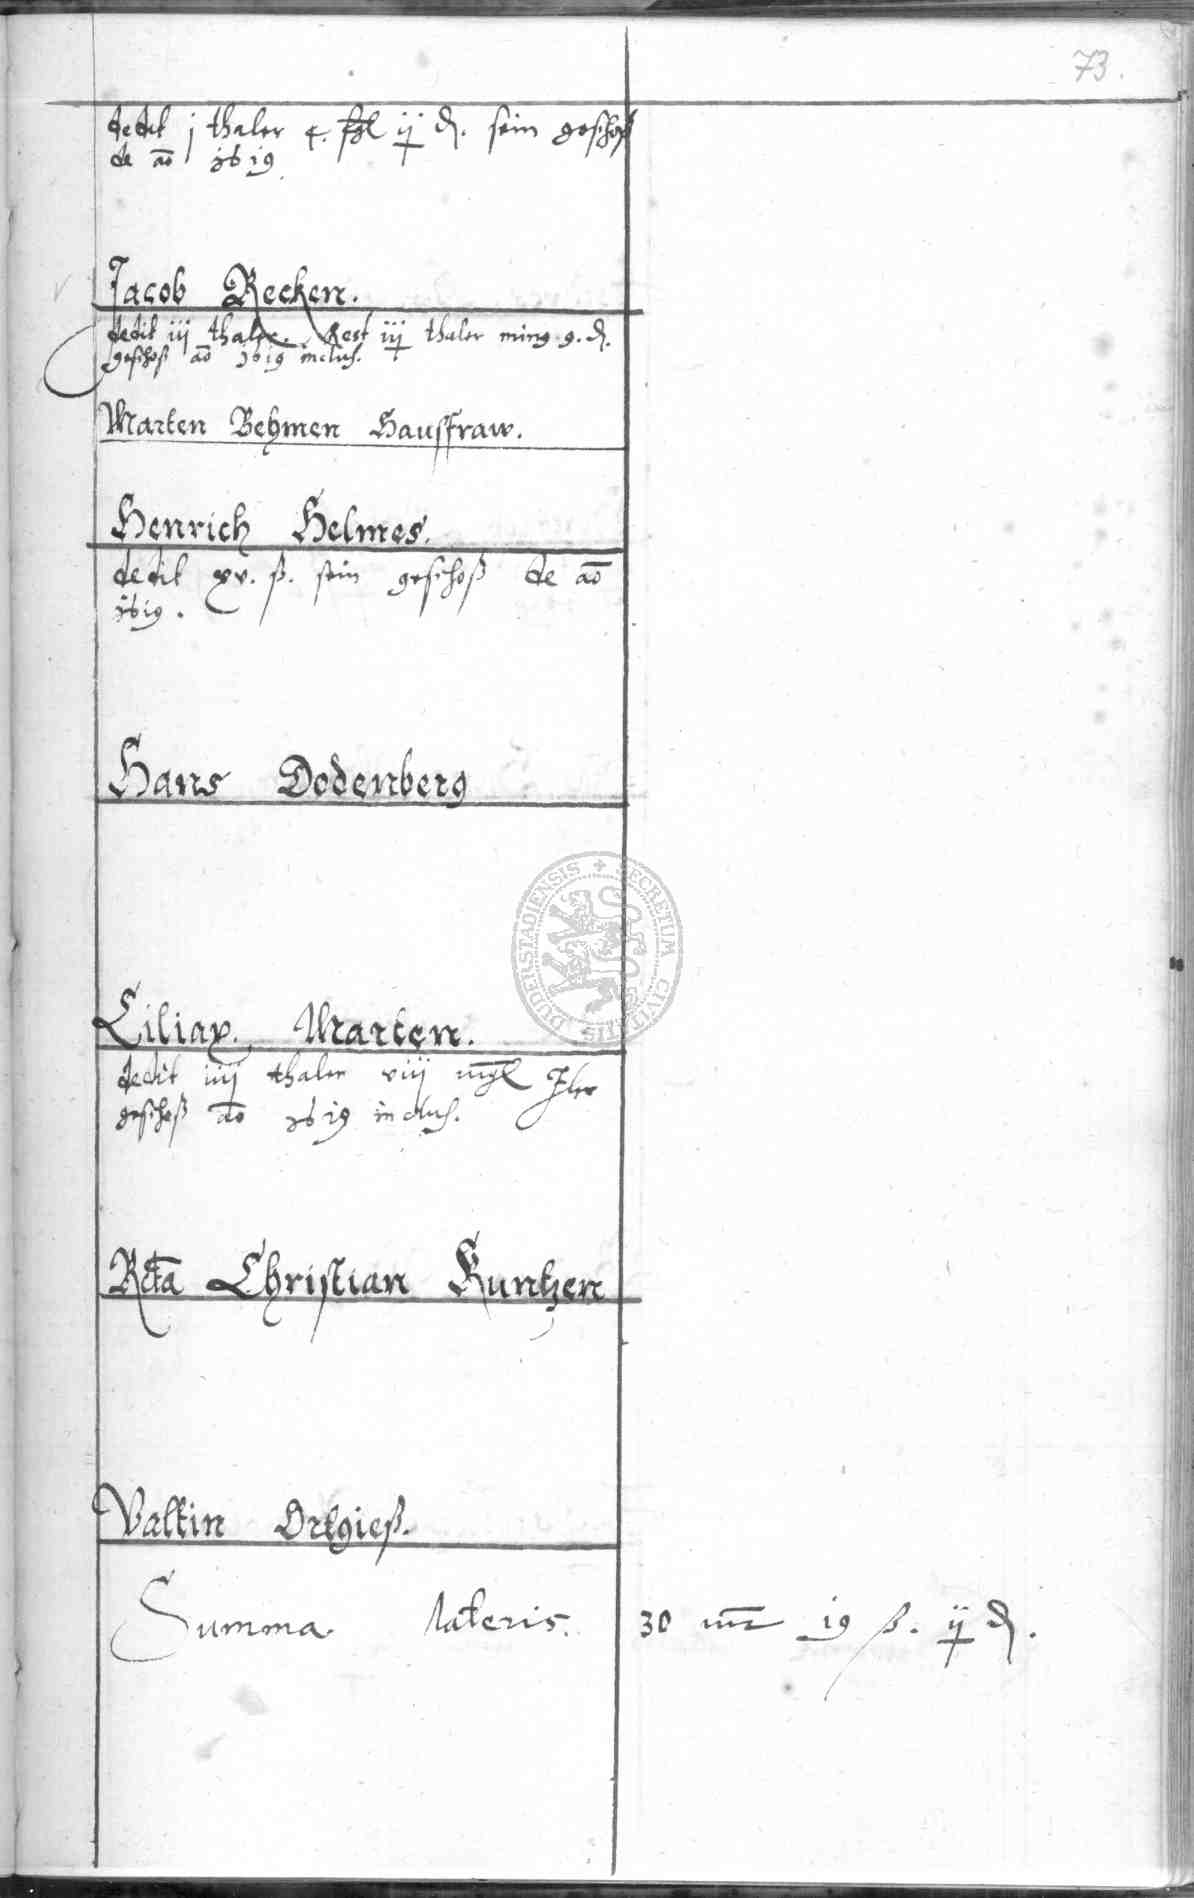 73.
dedit j thaler 4. fgl ij d. sein geschoß
de ao 1619
Jacob Recken.
dedit iij thaler. Rest iij thaler ming 9. d.
geschoß ao 1619 inclus.
Marten Behmen Hausfraw.
Henrich Helmes.
dedit xv. ß. sein geschoß de ao
1619.
Hans Dodenberg
DUDERSTADIENSIS + SECRETUM CIVITATIS
Ciliax Marten.
dedit iiij thaler viij mgl Ihr
geschoß ao 1619 inclus.
Rcta Christian Kuntzen
Valtin Ortgieß.
Summa lateris. 30 mr 19 ß. ij d.